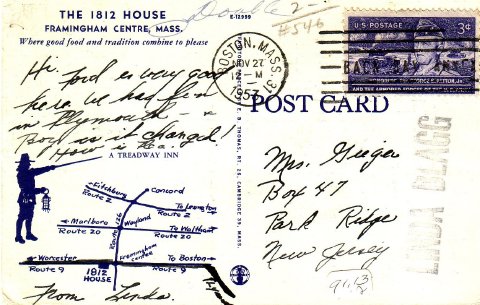 THE 1812 HOUSE
FRAMINGHAM CENTRE, MASS.
Where good food and tradition combine to please
E-12999
Double 2-
#546
Hi, Food is very good
here. We had fun
in Plymouth
Boy is it changed!
How is
A TREADWAY INN
Fitchburg
Route 2
Concord
To Lexington
Route 2
Marlboro
Route 20
Route 126
Wayland
To Waltham
Route 20
Worcester
Route 9
1812
HOUSE
Framingham
Centre
To Boston
Route 9
From Linda
THOMAS, CAMBRIDGE 39, MASS.
BOSTON, MASS.
NOV 27
12 - M
1953
U.S. POSTAGE
3¢
GEORGE S. PATTON, JR.
AND THE ARMORED FORCES OF THE U.S. ARMY
POST CARD
Mrs. Geiger
Box 47
Park Ridge
New Jersey
LINDA BLAGG